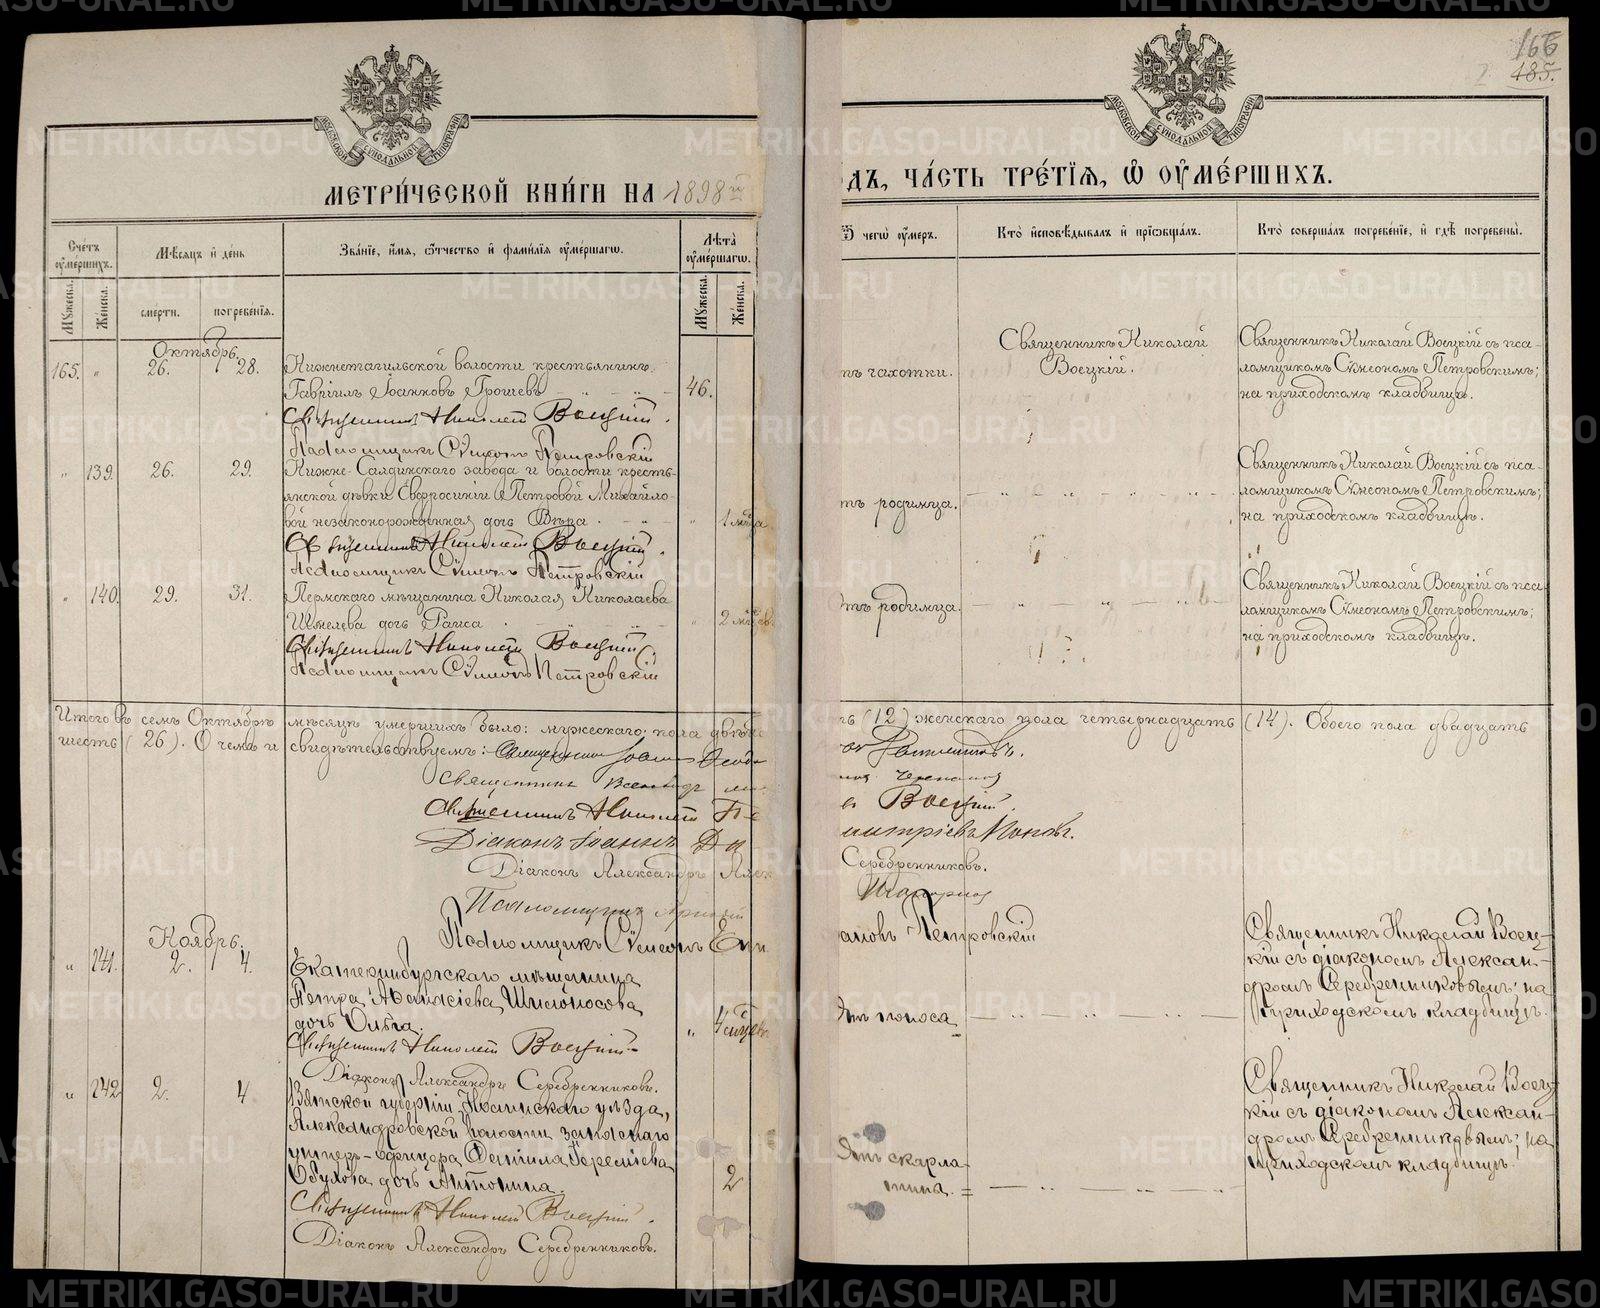 166
485.
МЕТРИ́ЧЕСКОЙ КНИ́ГИ НА 1898й
ДЪ, ЧА́СТЬ ТРЕ́ТІѦ, Ѡ ОУМЕ́РШИХЪ.
Сче́тъ оуме́ршихъ.
Мѣ́сяцъ и де́нь
Зва́ніе, и́мѧ, ѻ́тчество и фами́лїѧ оуме́ршагѡ.
Лѣ́та оуме́ршагѡ.
Ѿ чегѡ̀ оу́меръ.
Кто̀ и҆сповѣ́дывалъ и҆ прїѡбща́лъ.
Кто̀ соверша́лъ погребе́нїе, и҆ гдѣ̀ погребены̀.
Му́жеска.
Же́нска.
сме́рти.
погребе́нїѧ.
Му́жеска.
Же́нска.
Октябрь.
165. " 26. 28. Нижнетагильской волости крестьянинъ
Гавріилъ Іоанновъ Грошевъ 46.
Священникъ Николай Воецкій.
Псаломщикъ Сѵмеонъ Петровскій
тъ чахотки.
Священникъ Николай
Воецкій.
Священникъ Николай Воецкій съ пса-
ломщикомъ Сѵмеономъ Петровскимъ;
на приходскомъ кладбищѣ.
" 139. 26. 29. Нижне-Салдинскаго завода и волости кресть-
янской дѣвки Евфросиніи Петровой Михайло-
вой незаконорожденная дочь Вѣра. " 1 мѣсяца
Священникъ Николай Воецкій.
Псаломщикъ Сѵмеонъ Петровскій
тъ родимца.
Священникъ Николай Воецкій съ пса-
ломщикомъ Сѵмеономъ Петровскимъ;
на приходскомъ кладбищѣ.
" 140. 29. 31. Пермскаго мѣщанина Николая Николаева
Шмелева дочь Раиса " 2 мѣсяц.
Священникъ Николай Воецкій
Псаломщикъ Сѵмеонъ Петровскій
тъ родимца.
Священникъ Николай Воецкій съ пса-
ломщикомъ Сѵмеономъ Петровскимъ;
на приходскомъ кладбищѣ.
Итого въ семъ Октябрѣ мѣсяцѣ умершихъ было: мужескаго пола двѣ ть (12) женскаго пола четырнадцать (14). Обоего пола двадцать
шесть (26). О чемъ и свидѣтельствуемъ: Священникъ Іоаннъ
Священникъ
Священникъ Николай Воецкій.
Діаконъ Іоаннъ Дмитріевъ Поповъ.
Діаконъ Александръ Алек Серебренниковъ.
Псаломщикъ
Псаломщикъ Сѵмеонъ ановъ Петровскій
Ноябрь.
" 241. 2. 4. Екатеринбургскаго мѣщанина
Петра Аѳанасіева Шилоносова
дочь Ольга. " 4 мѣсяцевъ
Священникъ Николай Воецкій
Діаконъ Александръ Серебренниковъ.
Отъ поноса
Священникъ Николай Воец-
кій съ діакономъ Алексан-
дромъ Серебренниковымъ; на
приходскомъ кладбищѣ.
" 242 2. 4 Вятской губерніи, Нолинскаго уѣзда,
Александровской волости запаснаго
унтеръ-офицера Даніила Іереміева
Обухова дочь Антонина. 2
Священникъ Николай Воецкій.
Діаконъ Александръ Серебренниковъ.
Отъ скарла-
тина.
Священникъ Николай Воец-
кій съ діакономъ Алексан-
дромъ Серебренниковымъ; на
приходскомъ кладбищѣ.
METRIKI.GASO-URAL.RU